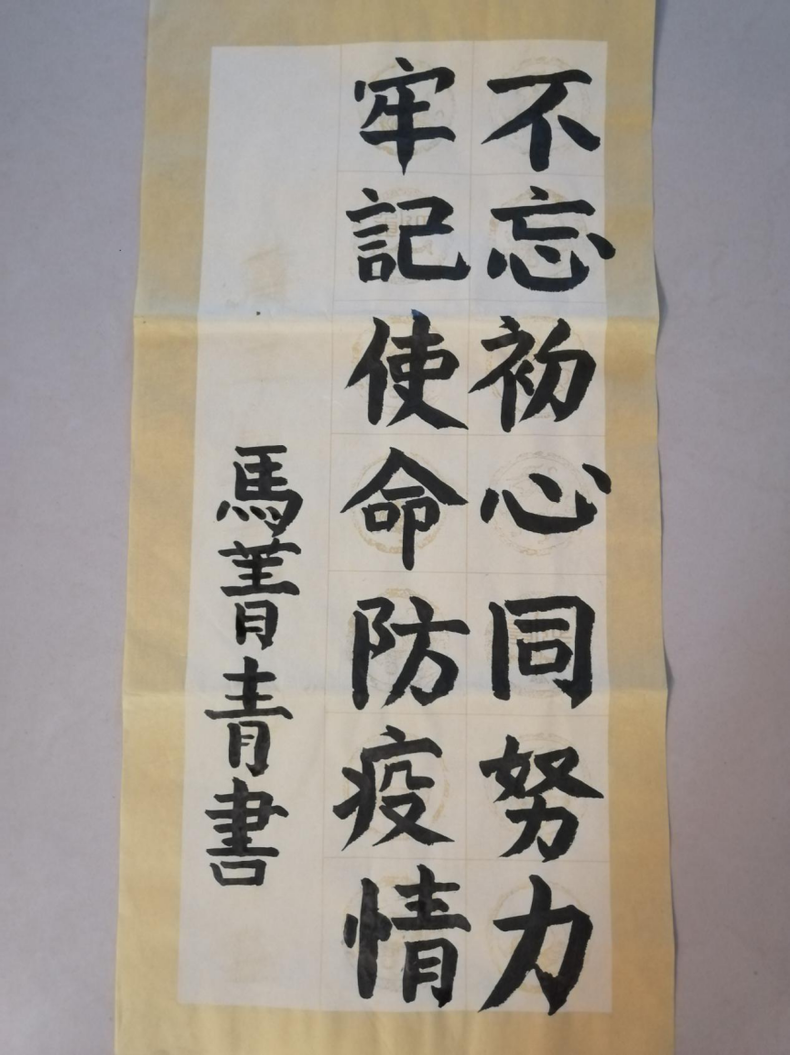 不忘初心同努力
牢記使命防疫情
馬菁青書